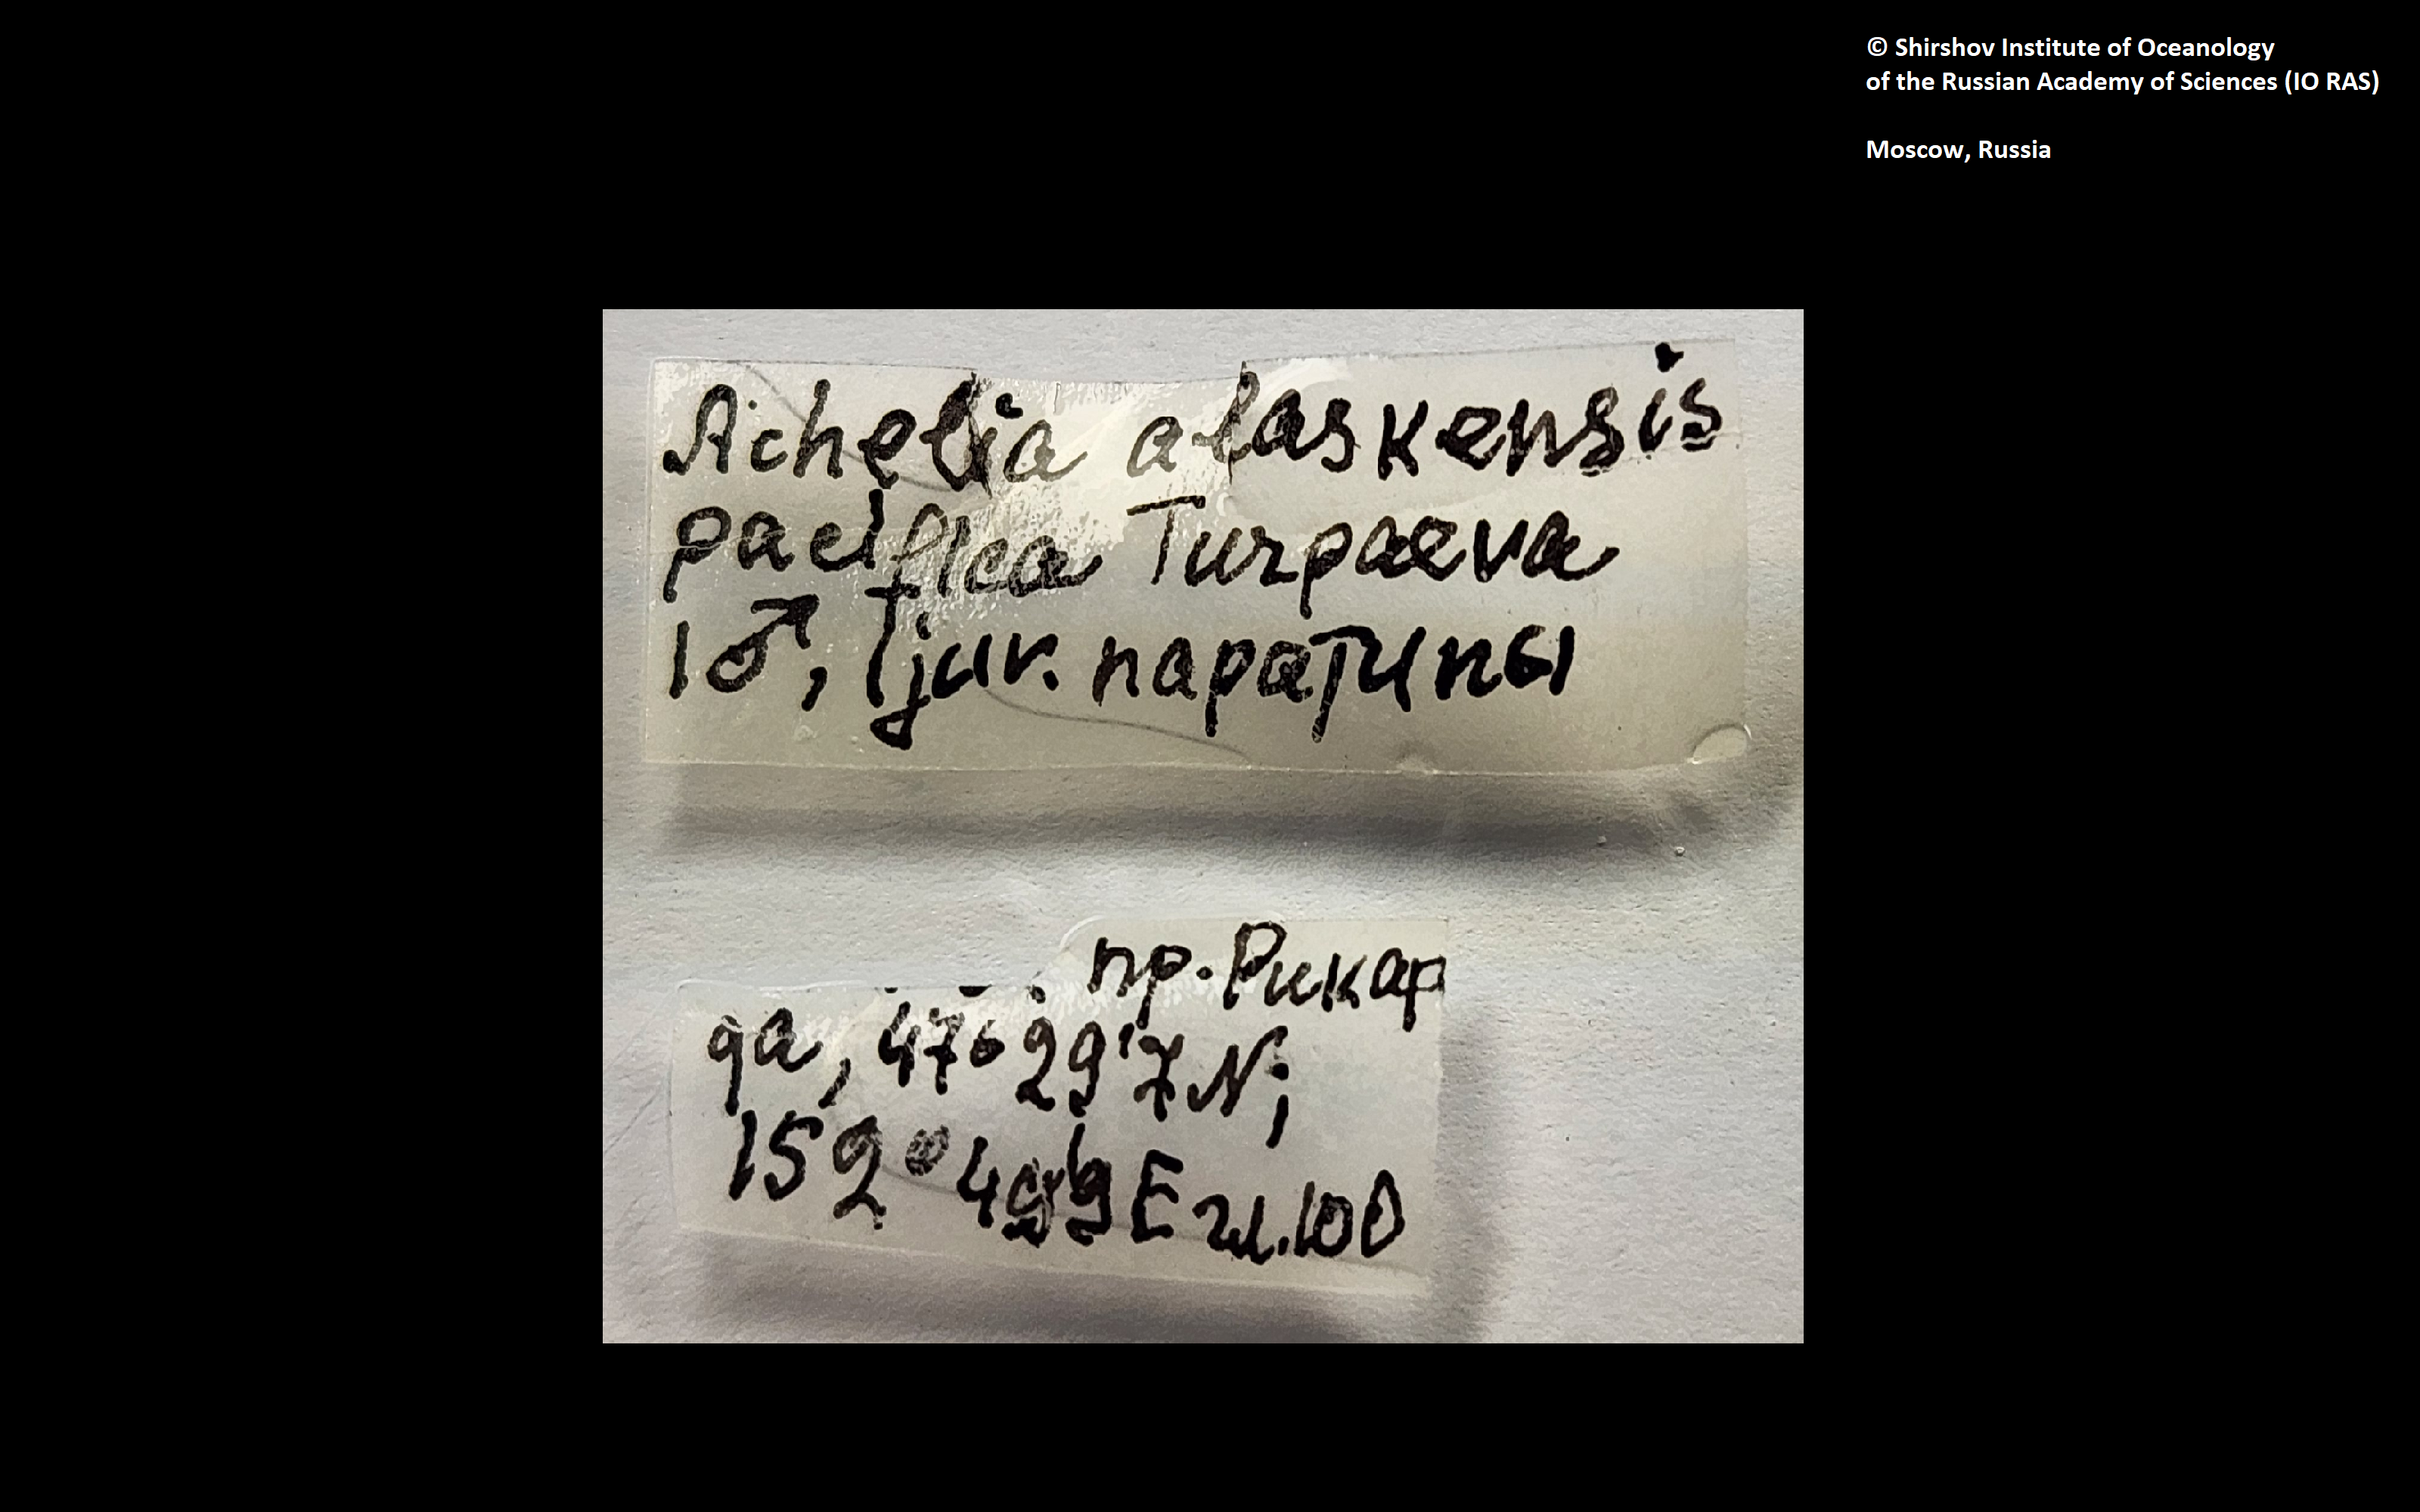 © Shirshov Institute of Oceanology
of the Russian Academy of Sciences (IO RAS)
Moscow, Russia
Achelia alaskensis
pacifica Turpaeva
1♂, 1juv. паратипы
пр. Рикар
да, 47°29'7 N;
152°49'9 E гл.100